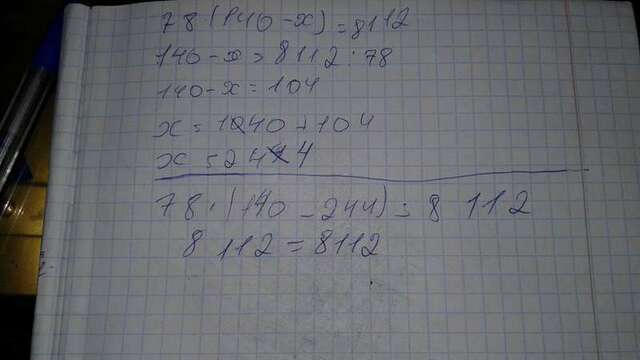 78 (140-x) = 8112
140-x = 8112:78
140-x = 104
x = 140+104
x = 244
78·(140-244) = 8 112
8 112 = 8112